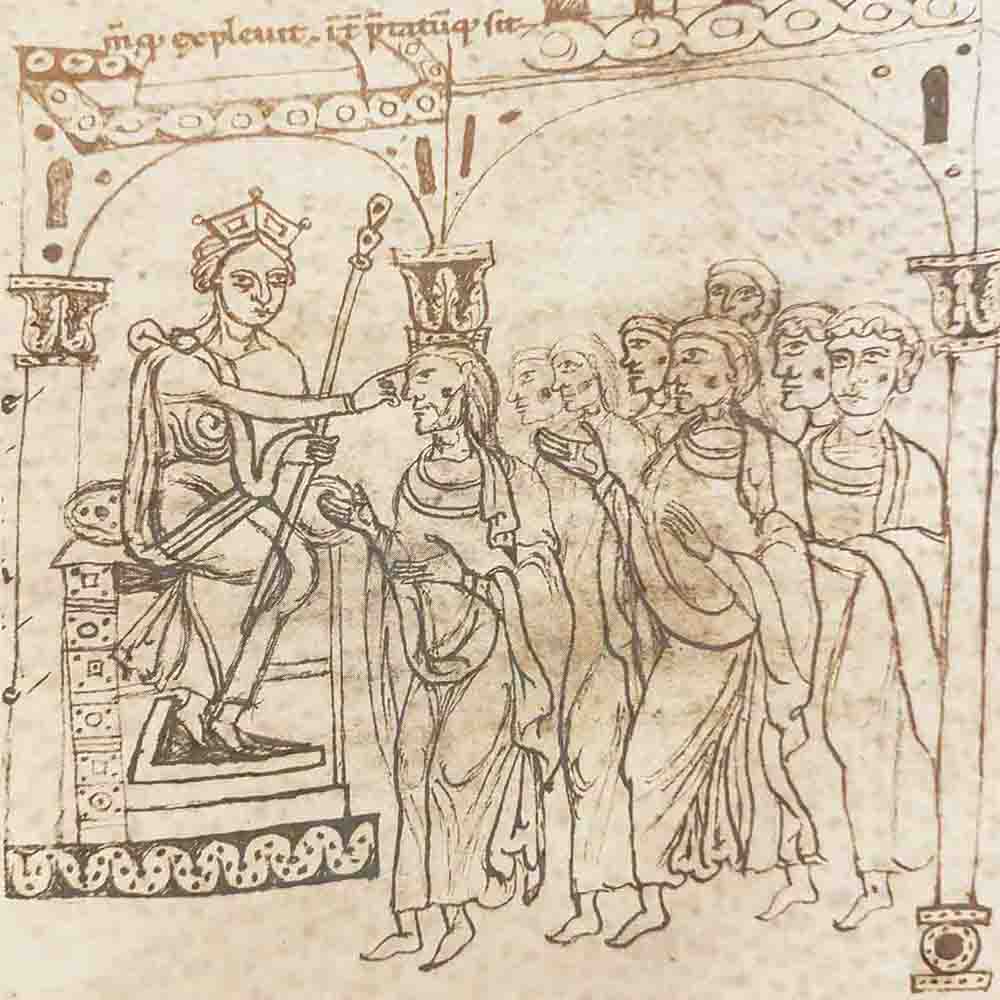 m̄q expleuit. it̄ p̄tatūq sit